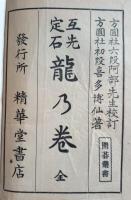 方圓社六段阿部先生校訂
方圓社初段喜多博仙著
圍棋叢書
互先
定石
龍乃卷
全
發行所
精華堂書店